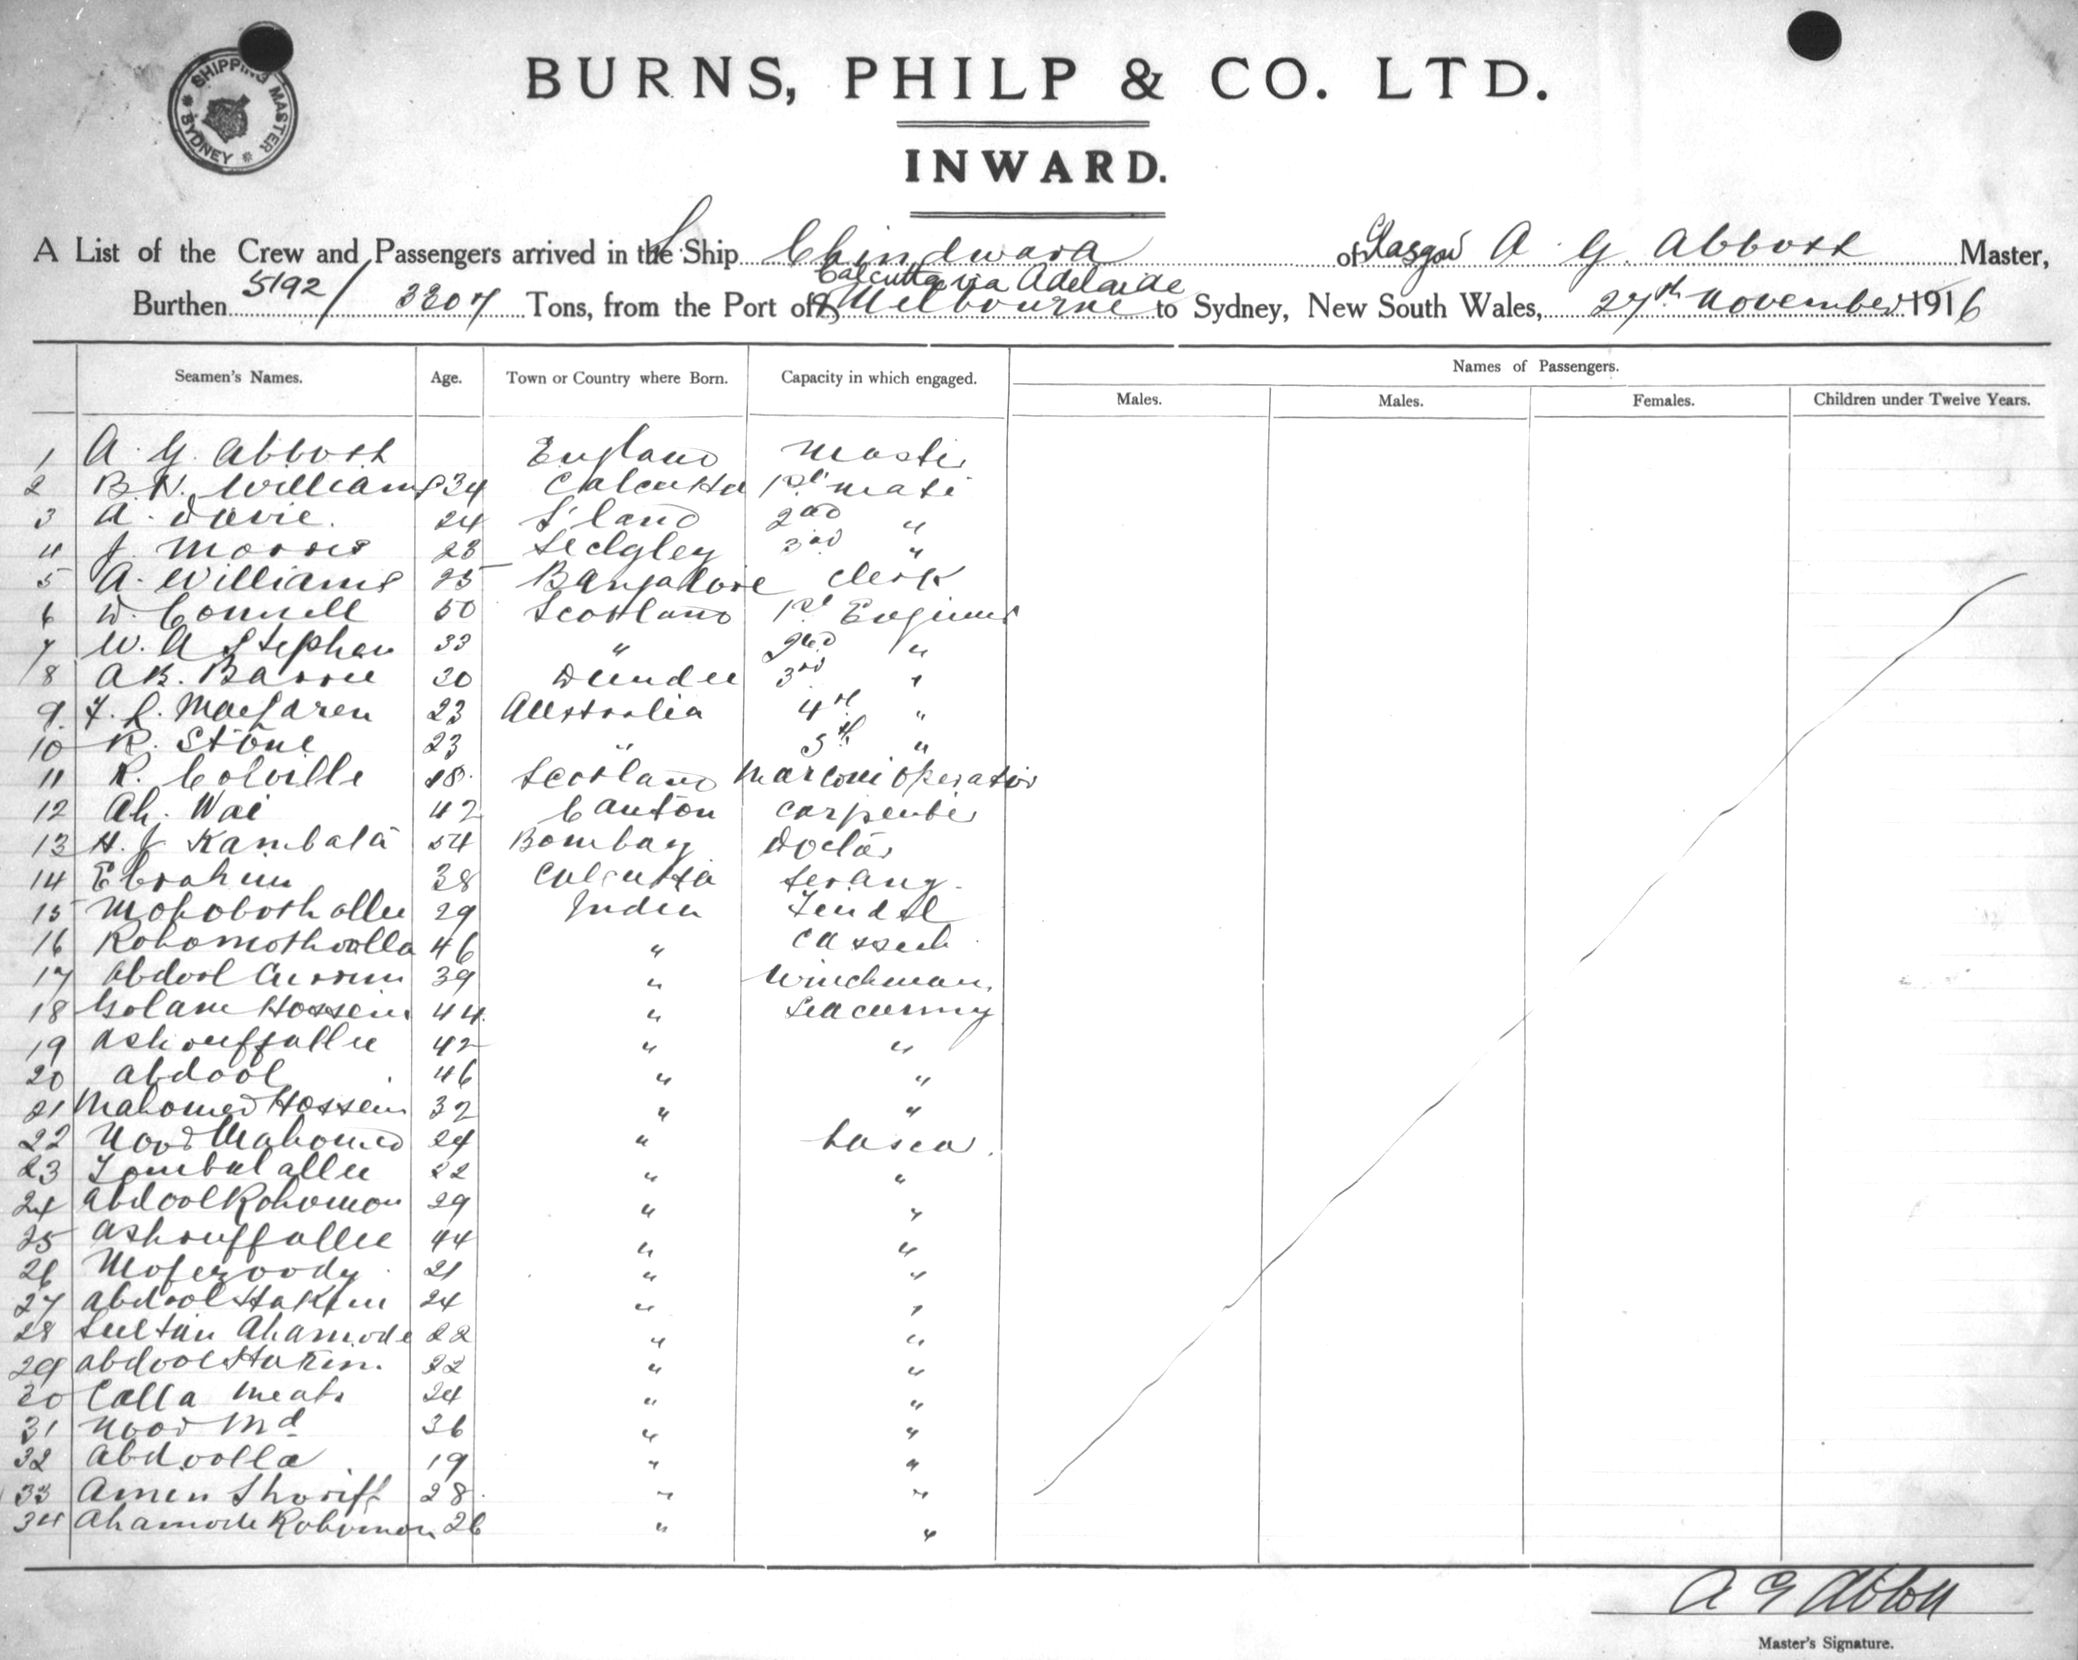 SHIPPING MASTER
* SYDNEY *
BURNS, PHILP & CO. LTD.
INWARD.
A List of the Crew and Passengers arrived in the S. Ship Chindwara of Glasgow A. G. Abbott Master,
Calcutta via Adelaide
Burthen 5192/3307 Tons, from the Port of & Melbourne to Sydney, New South Wales, 27th November 1916
Seamen's Names. Age. Town or Country where Born. Capacity in which engaged. Names of Passengers.
Males. Males. Females. Children under Twelve Years.
1 A. G. Abbott England Master
2 B. N. Williams 34 Calcutta 1st Mate
3 A. Davie. 24 S'land 2nd "
4 J. Morris 23 Sedgley 3rd "
5 A. Williams 25 Bangalore Clerk
6 D. Connell 50 Scotland 1st Engineer
7 W. A Stephen 33 " 2nd "
8 A B. Barrie 30 Dundee 3rd "
9. F. L. MacLaren 23 Australia 4th "
10 R. Stone 23 " 5th "
11 R. Colville 18 Scotland Marconi Operator
12 Ah. Wai 42 Canton Carpenter
13 H. J Kambata 54 Bombay Doctor
14 Ebrahim 38 Calcutta Serang
15 Moboboth allee 29 India Tindal
16 Rohomothoolla 46 " Cassub
17 Abdool Currim 39 " Winchman
18 Golam Hossein 44 " Seacunny
19 Ashruffallee 42 " "
20 Abdool 46 " "
21 Mahomed Hossein 32 " "
22 Noor Mahomed 24 " Lascar.
23 allee 22 " "
24 Abdool Rohomon 29 " "
25 Ashruffallee 44 " "
26 Mofezoody 21 " "
27 Abdool Hakim 24 " "
28 Sultan Ahamode 22 " "
29 Abdool Hakim. 22 " "
30 Calla Meah 24 " "
31 Noor Md 36 " "
32 Abdoolla 19 " "
33 Amen Shoriff 28 " "
34 Ahamode Rohomon 26 " "
A G Abbott
Master's Signature.